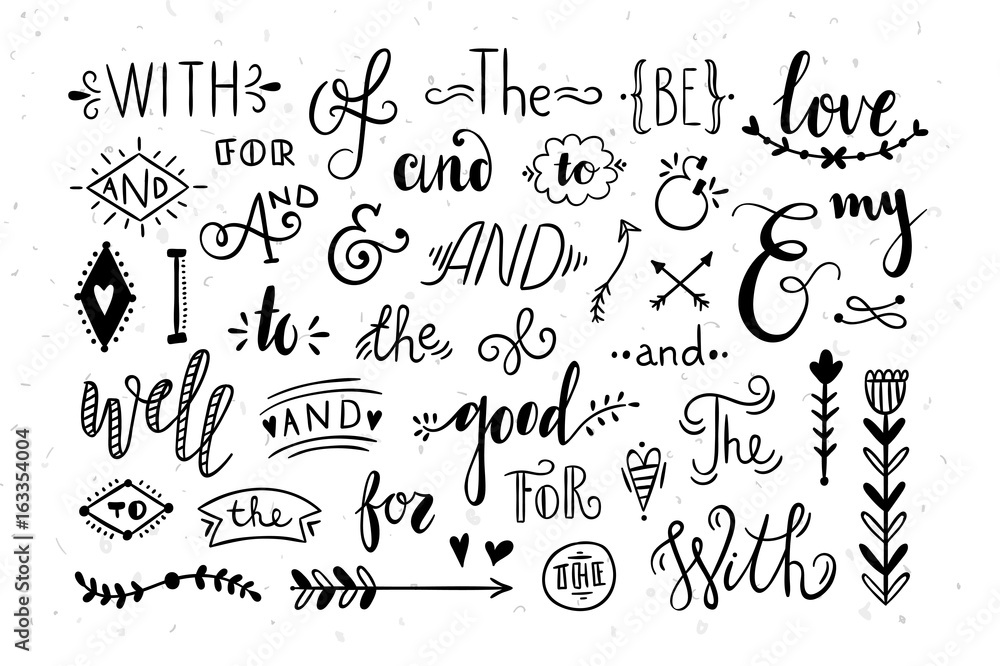 WITH
of
The
{BE}
love
FOR
and
to
AND
AND
&
AND
&
my
I
to
the
of
and
well
AND
good
The
TO
the
for
FOR
THE
With
Adobe Stock | #163354004